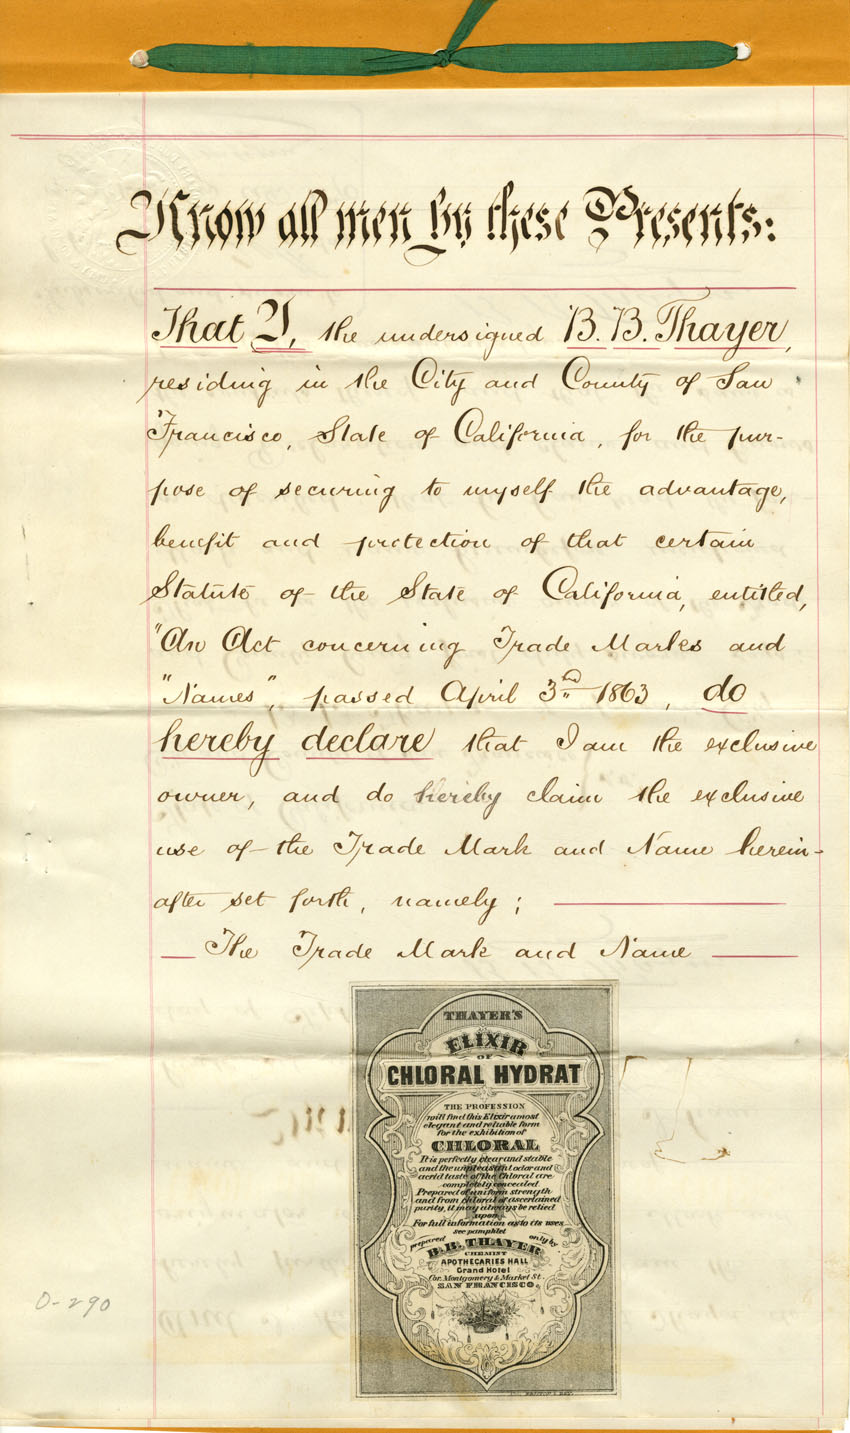 Know all men by these Presents:
That I, the undersigned B. B. Thayer,
residing in the City and County of San
Francisco, State of California, for the pur-
pose of securing to myself the advantage,
benefit and protection of that certain
Statute of the State of California, entitled,
"An Act concerning Trade Marks and
"Names", passed April 3rd 1863, do
hereby declare that I am the exclusive
owner, and do hereby claim the exclusive
use of the Trade Mark and Name herein-
after set forth, namely;
The Trade Mark and Name
THAYER'S
ELIXIR
OF
CHLORAL HYDRAT
THE PROFESSION
will find this Elixir a most
elegant and reliable form
for the exhibition of
CHLORAL
It is perfectly clear and stable
and the unpleasant odor and
acrid taste of the Chloral are
completely concealed.
Prepared of uniform strength
and from Chloral of ascertained
purity, it may always be relied
upon.
For full information as to its uses
see pamphlet
prepared only by
B.B. THAYER
CHEMIST
APOTHECARIES HALL
Grand Hotel
Cor. Montgomery & Market St.
SAN FRANCISCO.
0-290